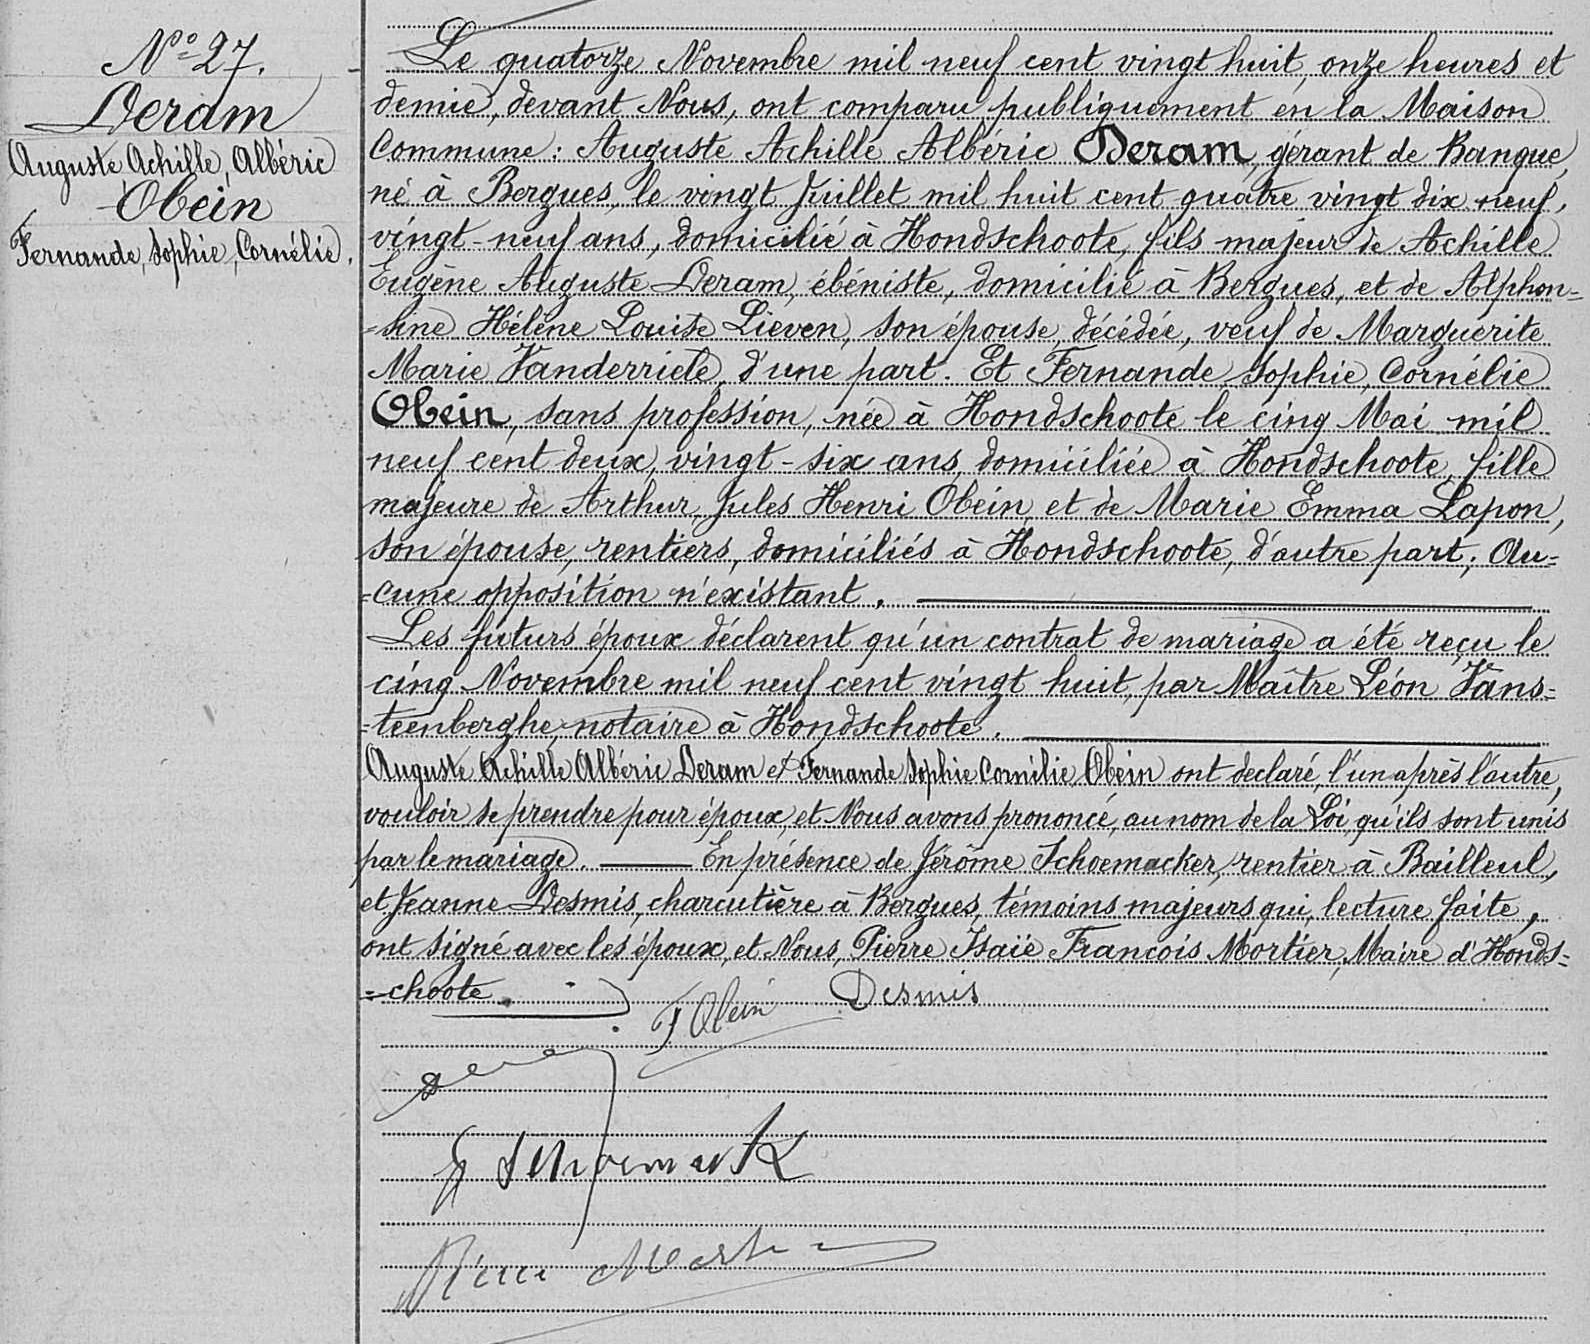 N° 27.
Deram
Auguste, Achille, Albéric
Obein
Fernande, Sophie, Cornélie.
Le quatorze Novembre mil neuf cent vingt huit, onze heures et
demie, devant Nous, ont comparu publiquement en la Maison
Commune : Auguste Achille Albéric Deram, gérant de Banque,
né à Bergues, le vingt Juillet mil huit cent quatre vingt dix neuf,
vingt-neuf ans, domicilié à Hondschoote, fils majeur de Achille
Eugène Auguste Deram, ébéniste, domicilié à Bergues, et de Alphon=
=sine Hélène Louise Lieven, son épouse, décédée, veuf de Marguerite
Marie Vanderriele, d'une part. Et Fernande, Sophie, Cornélie
Obein, sans profession, née à Hondschoote le cinq Mai mil
neuf cent deux, vingt-six ans, domiciliée à Hondschoote, fille
majeure de Arthur, Jules Henri Obein, et de Marie Emma Lapon,
son épouse, rentiers, domiciliés à Hondschoote, d'autre part ; Au=
=cune opposition n'existant.
Les futurs époux déclarent qu'un contrat de mariage a été reçu le
cinq Novembre mil neuf cent vingt huit, par Maître Léon Vans=
=teenberghe, notaire à Hondschoote.
Auguste Achille Albéric Deram et Fernande Sophie Cornélie Obein ont declaré, l'un après l'autre,
vouloir se prendre pour époux, et Nous avons prononcé, au nom de la Loi, qu'ils sont unis
par le mariage. En présence de Jérôme Schoemacker, rentier à Bailleul,
et Jeanne Desmis, charcutière à Bergues, témoins majeurs qui, lecture faite,
ont signé avec les époux, et Nous, Pierre Isaïe François Mortier, Maire d'Honds=
=choote.
F Obein Desmis